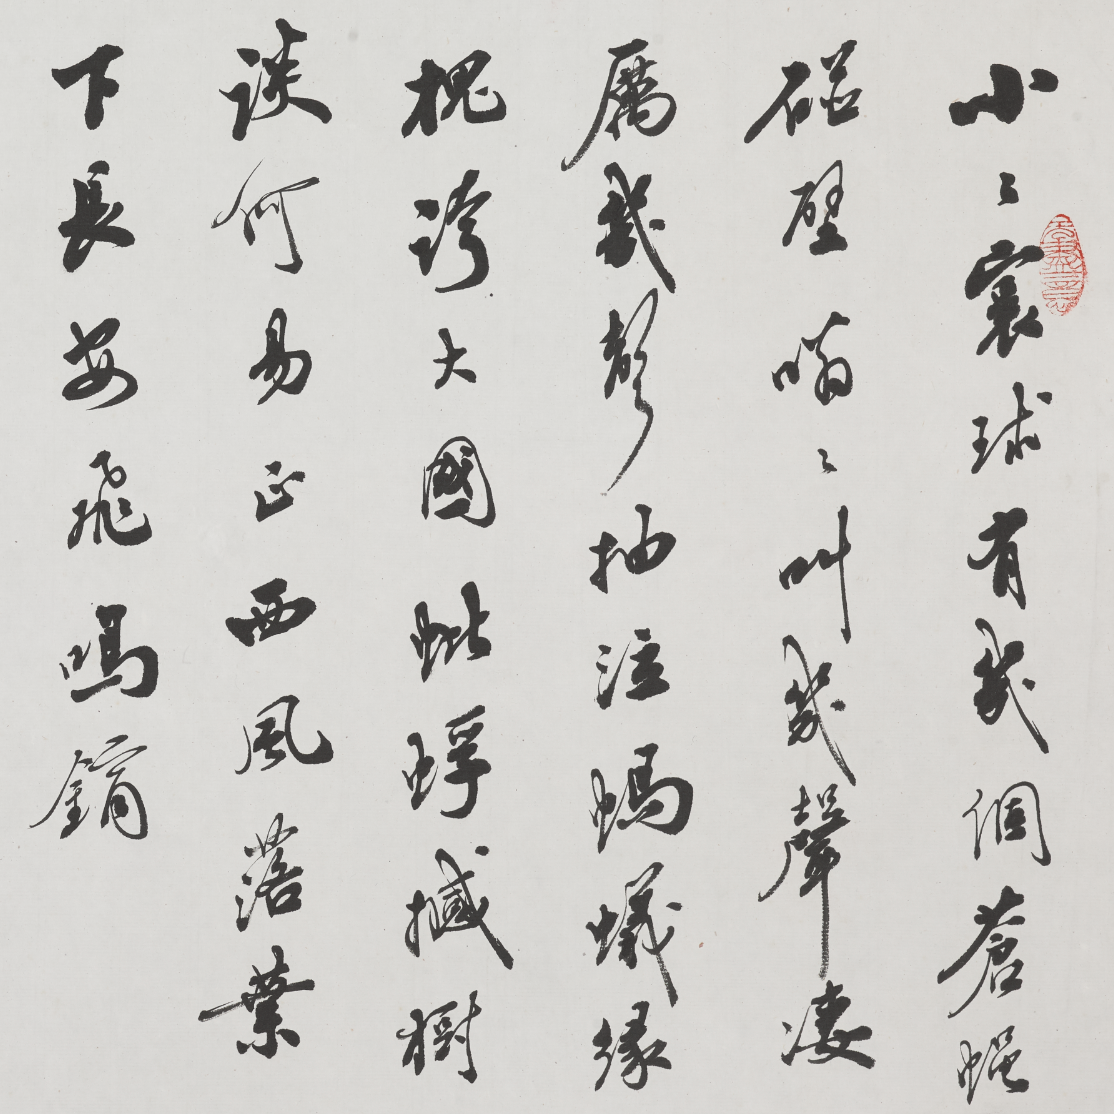 小〻寰球有幾個蒼蠅
碰壁嗡〻叫幾聲凄
厲幾聲抽泣螞蟻緣
槐誇大國蚍蜉撼樹
談何易正西風落葉
下長安飛鳴鏑